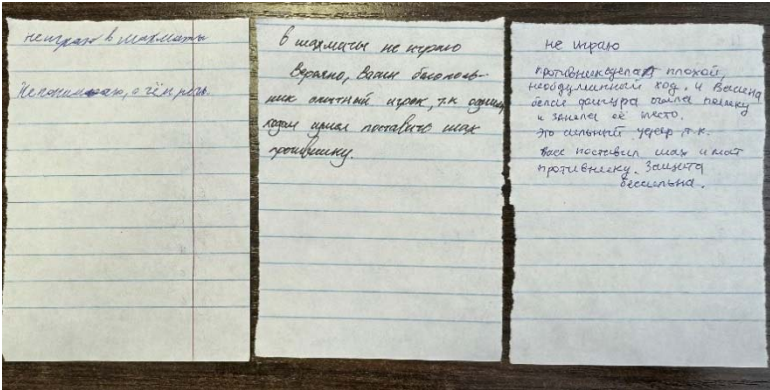 не играю в шахматы
Не понимаю, о чём речь.
в шахматы не играю
Верояно, Ваш
ник опытный игрок, т.к одним
ходом успел поставить шах
противнику.
не играю
Противник сделал плохой,
необдуманный ход. И Васина
белая фигура съела пешку
и заняла её место.
Это сильный удар т.к.
Вася поставил шах и мат
противнику. Защита
бессильна.